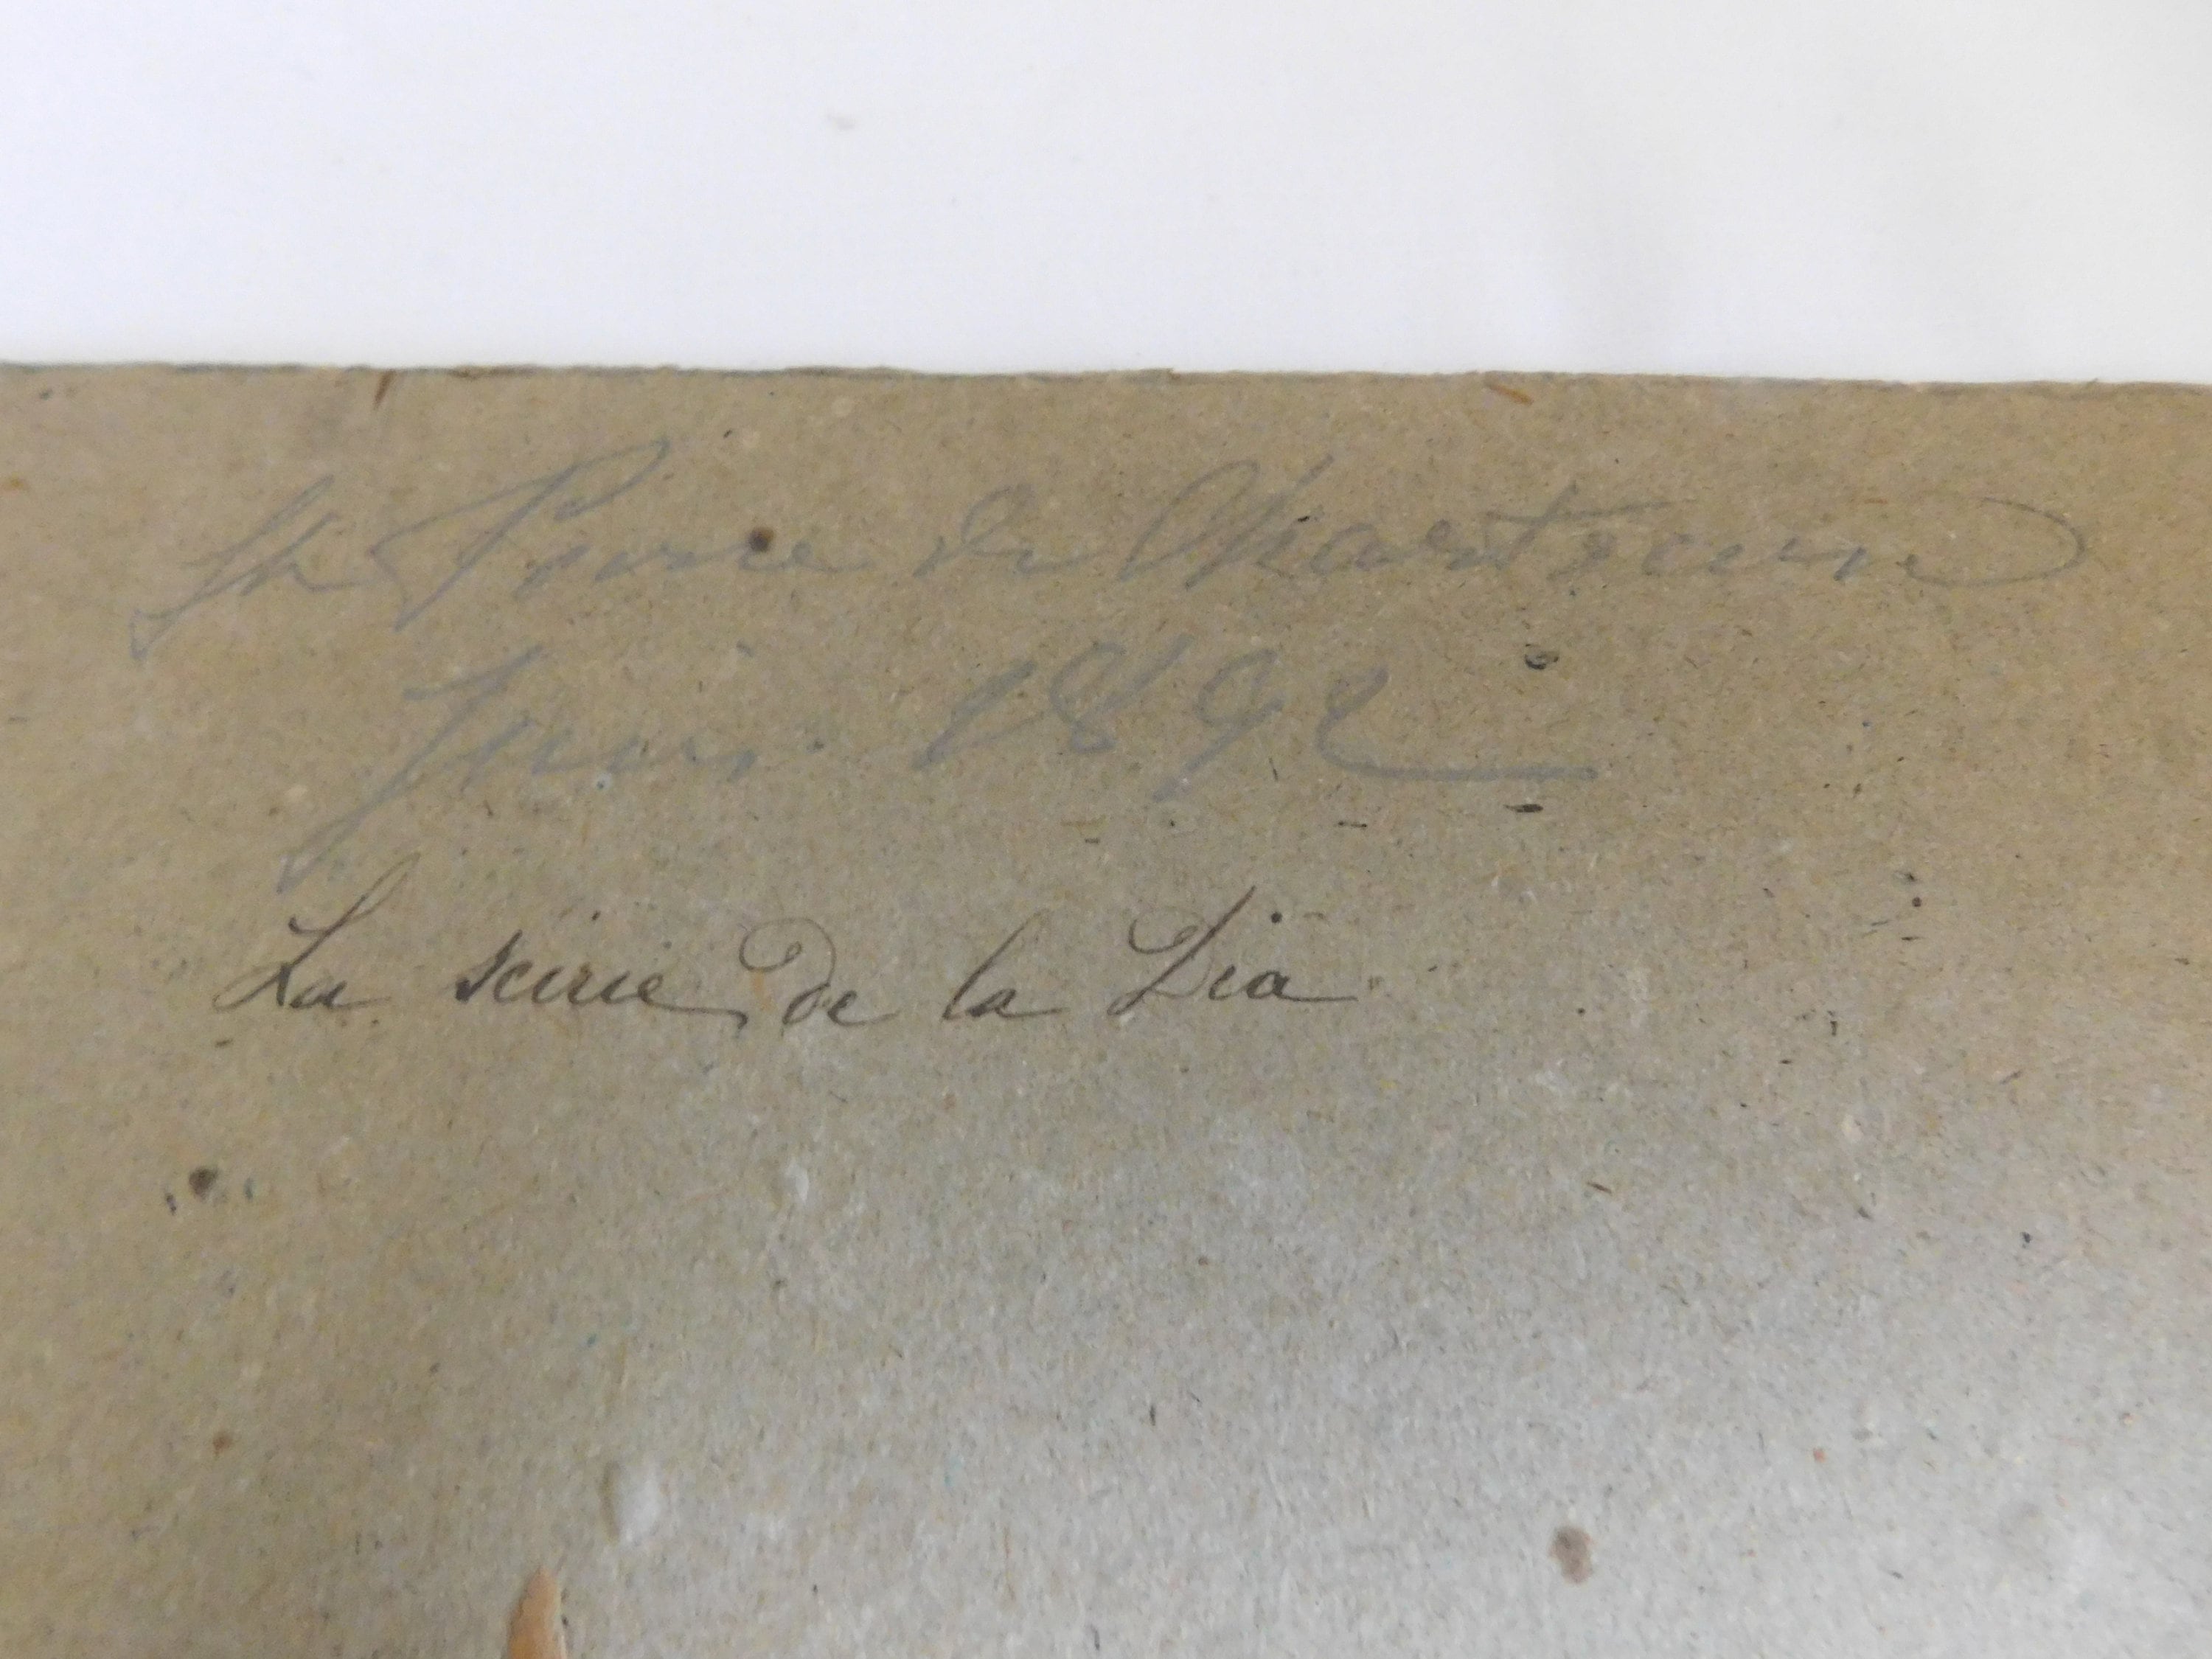 St Pierre de Chartreuse
Juin 1892
La scirie de la Dia